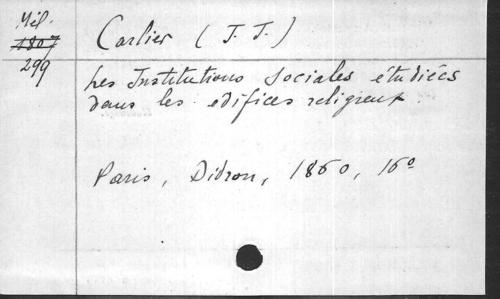 Mil.
1807
299
Carlier (J. J.)
Les Institutions sociales étudiées
dans les édifices religieux.
Paris, Didron, 1860, 16º